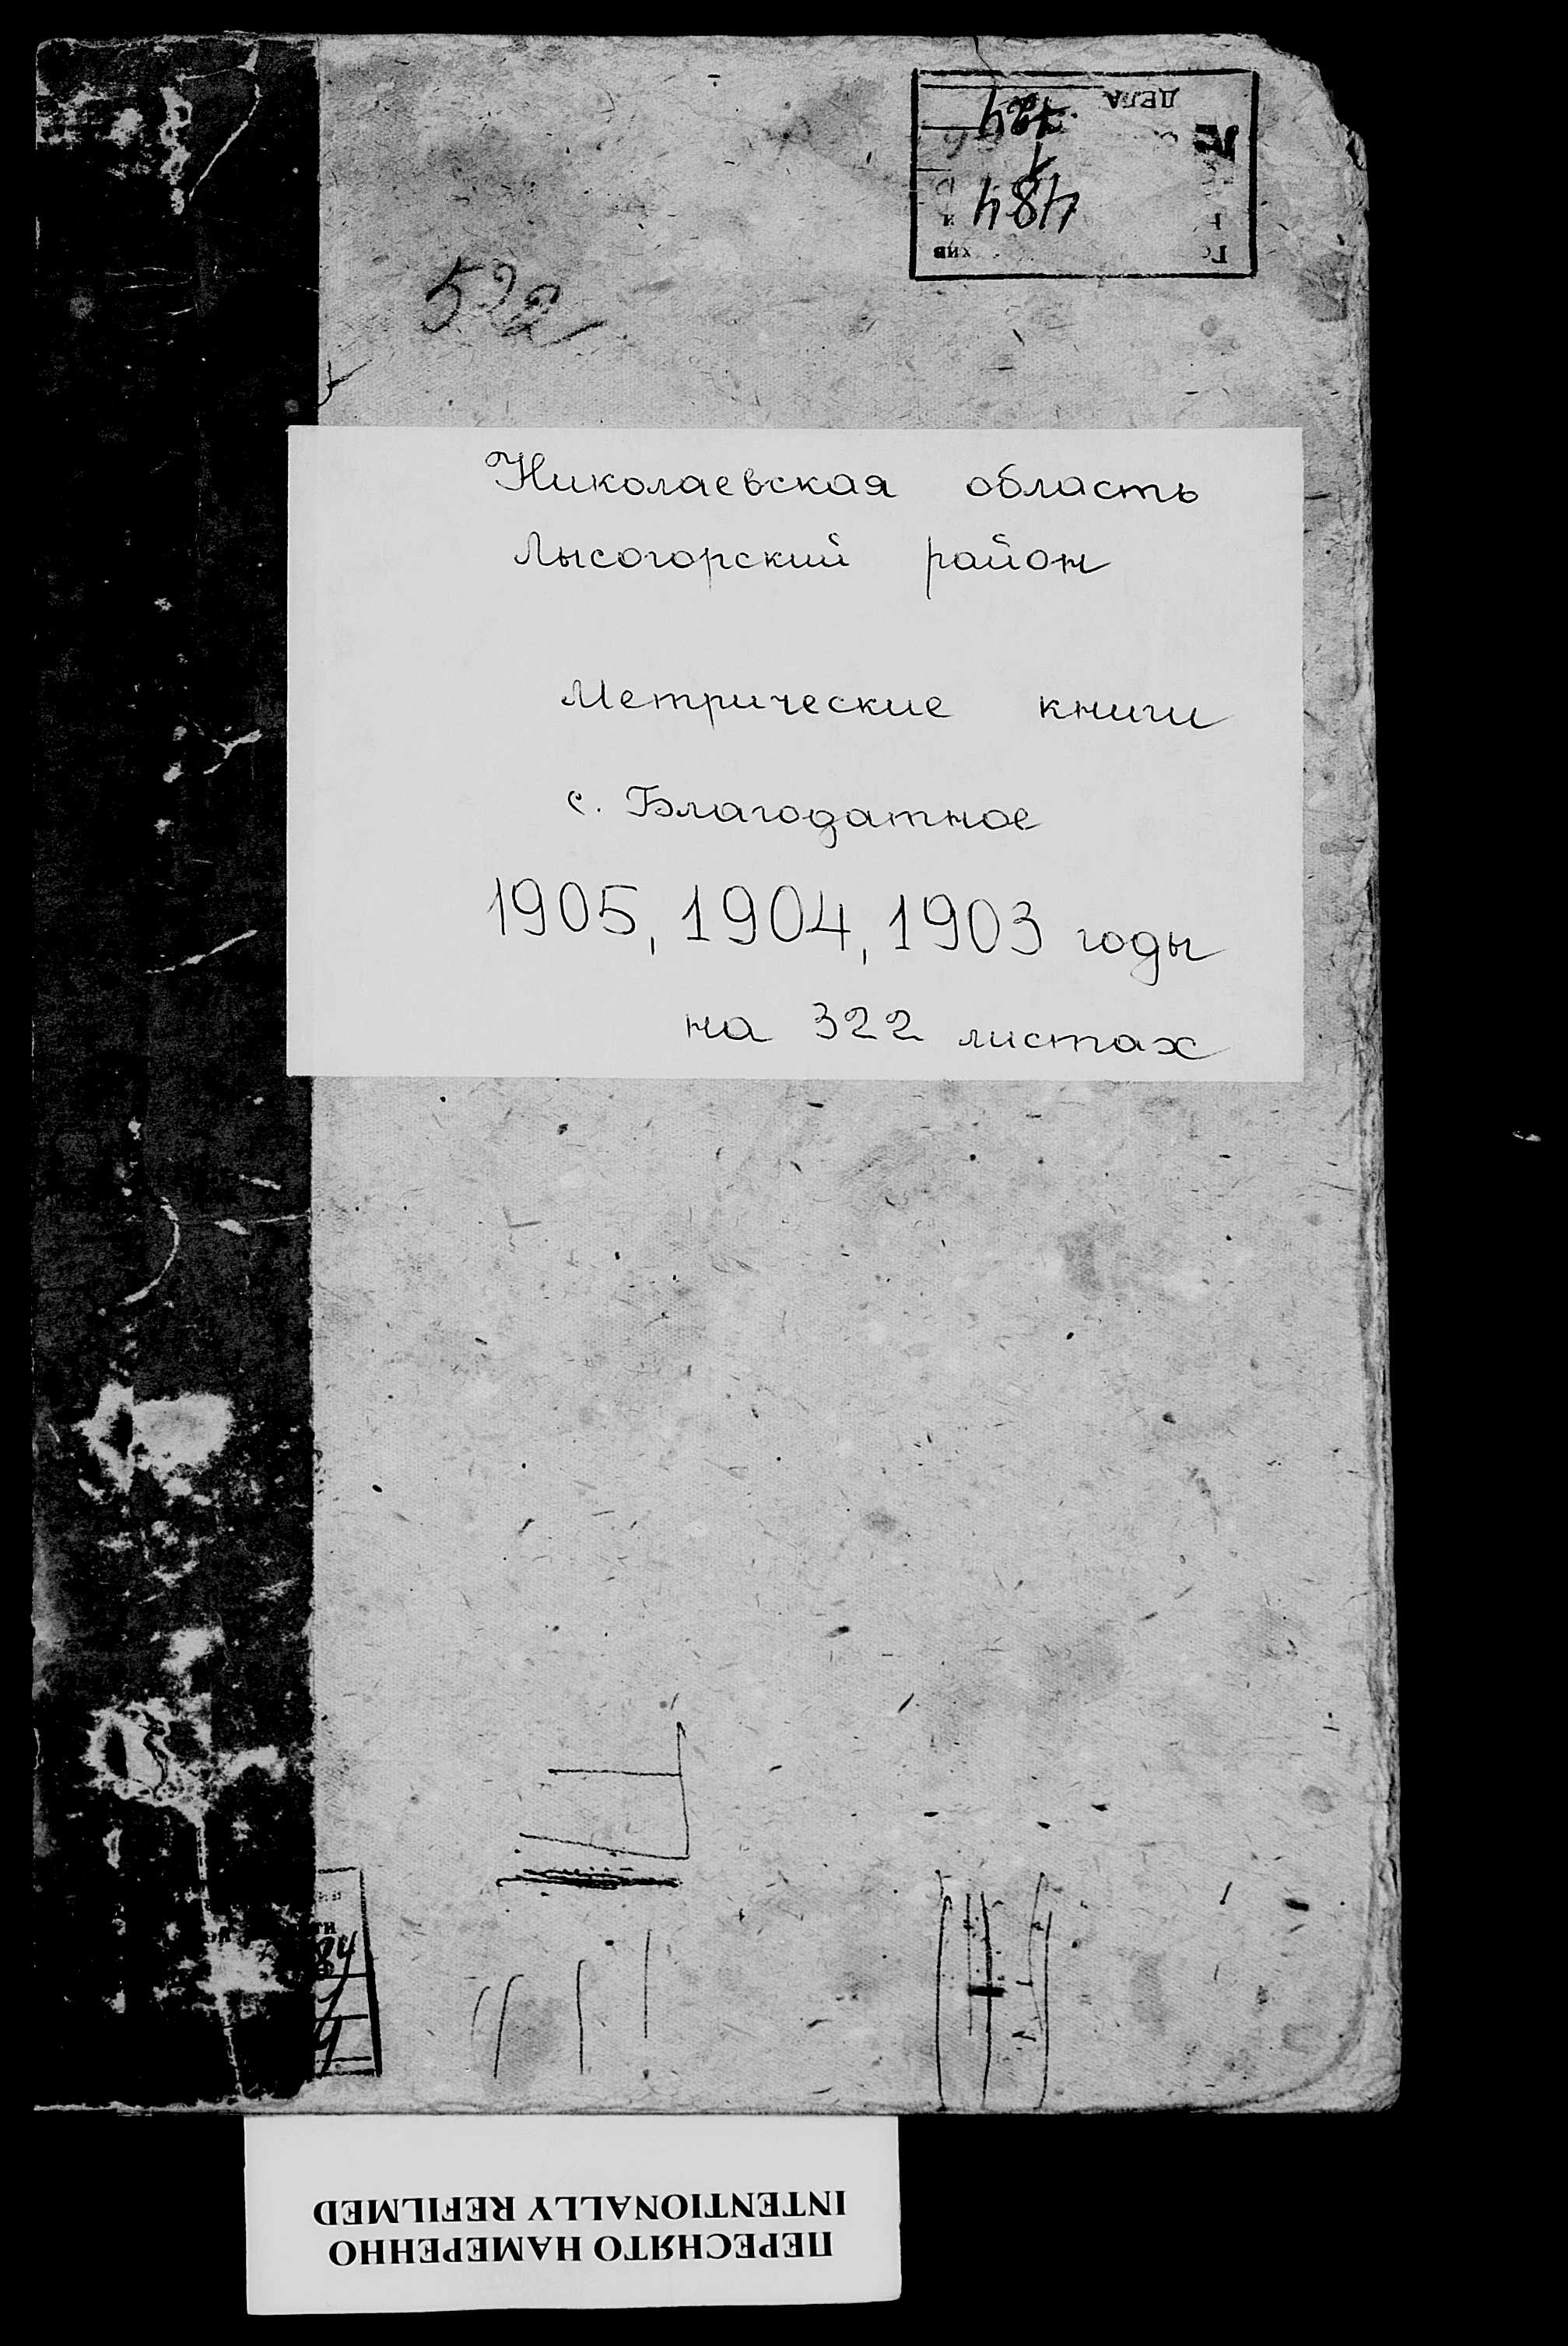 ДЕЛА
484
522
Николаевская область
Лысогорский район
Метрические книги
с. Благодатное
1905, 1904, 1903 годы
на 322 листах
ПЕРЕСНЯТО НАМЕРЕННО
INTENTIONALLY REFILMED